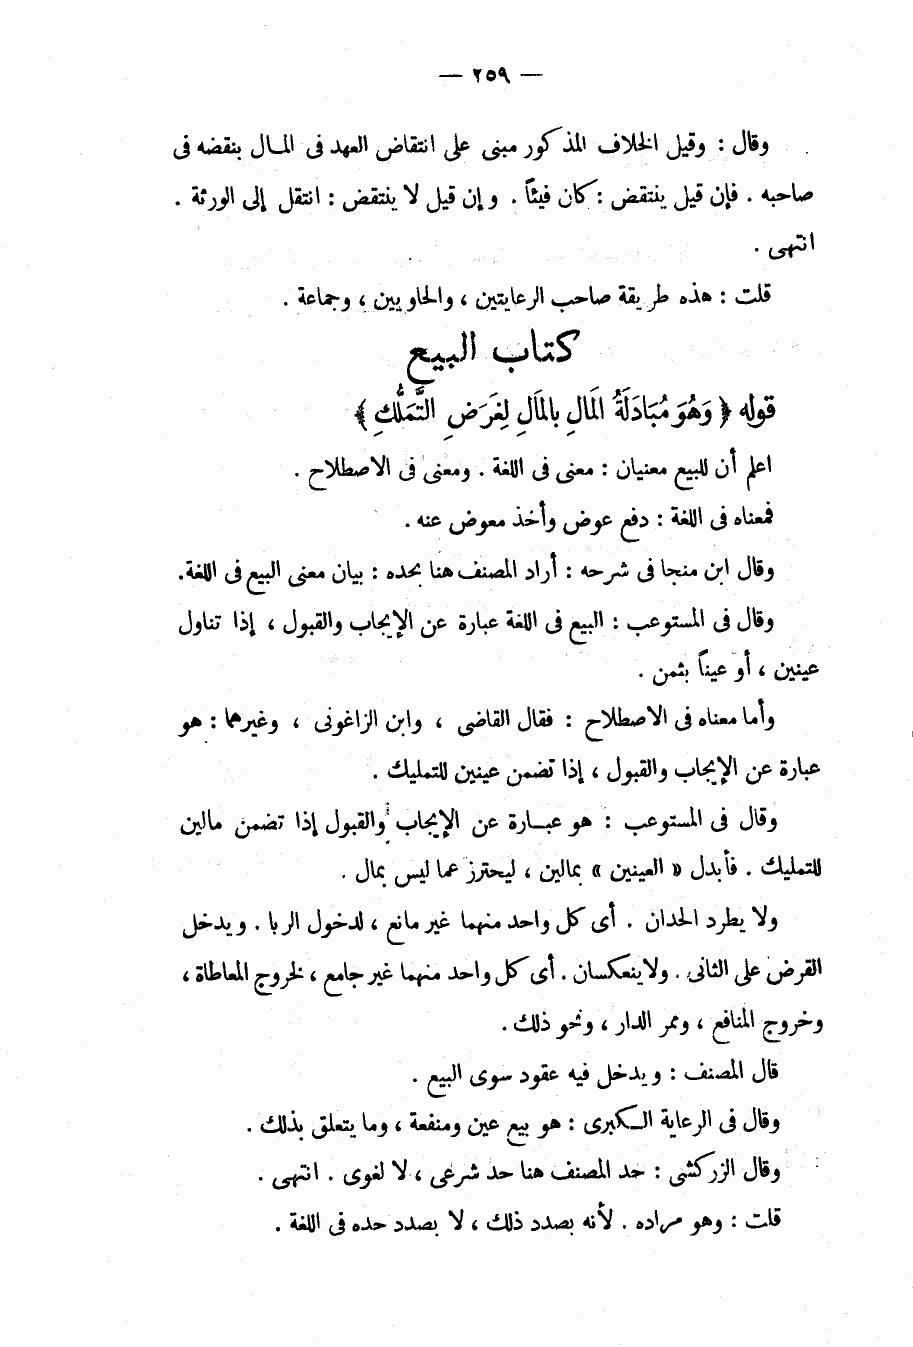 — ٢٥٩ —
وقال : وقيل الخلاف المذكور مبنى على انتقاض العهد فى المـال بنقضه فى
صاحبه . فإن قيل ينتقض : كان فيئاً . وإن قيل لا ينتقض : انتقل إلى الورثة .
انتهى .
قلت : هذه طريقة صاحب الرعايتين ، والحاويين ، وجماعة .
كتاب البيع
قوله ﴿ وَهُوَ مُبَادَلَةُ المَالِ بِالمَالِ لِغَرَضِ التَّمَلُّكِ ﴾
اعلم أن للبيع معنيان : معنى فى اللغة . ومعنى فى الاصطلاح .
فمعناه فى اللغة : دفع عوض وأخذ معوض عنه .
وقال ابن منجا فى شرحه : أراد المصنف هنا بحده : بيان معنى البيع فى اللغة .
وقال فى المستوعب : البيع فى اللغة عبارة عن الإيجاب والقبول ، إذا تناول
عينين ، أو عيناً بثمن .
وأما معناه فى الاصطلاح : فقال القاضى ، وابن الزاغونى ، وغيرهما : هو
عبارة عن الإيجاب والقبول ، إذا تضمن عينين للتمليك .
وقال فى المستوعب : هو عبـارة عن الإيجاب والقبول إذا تضمن مالين
للتمليك . فأبدل « العينين » بمالين ، ليحترز عما ليس بمال .
ولا يطرد الحدان . أى كل واحد منهما غير مانع ، لدخول الربا . ويدخل
القرض على الثانى . ولا ينعكسان . أى كل واحد منهما غير جامع ، لخروج المعاطاة ،
وخروج المنافع ، وممر الدار ، ونحو ذلك .
قال المصنف : ويدخل فيه عقود سوى البيع .
وقال فى الرعاية الـكبرى : هو بيع عين ومنفعة ، وما يتعلق بذلك .
وقال الزركشى : حد المصنف هنا حد شرعى ، لا لغوى . انتهى .
قلت : وهو مراده . لأنه بصدد ذلك ، لا بصدد حده فى اللغة .